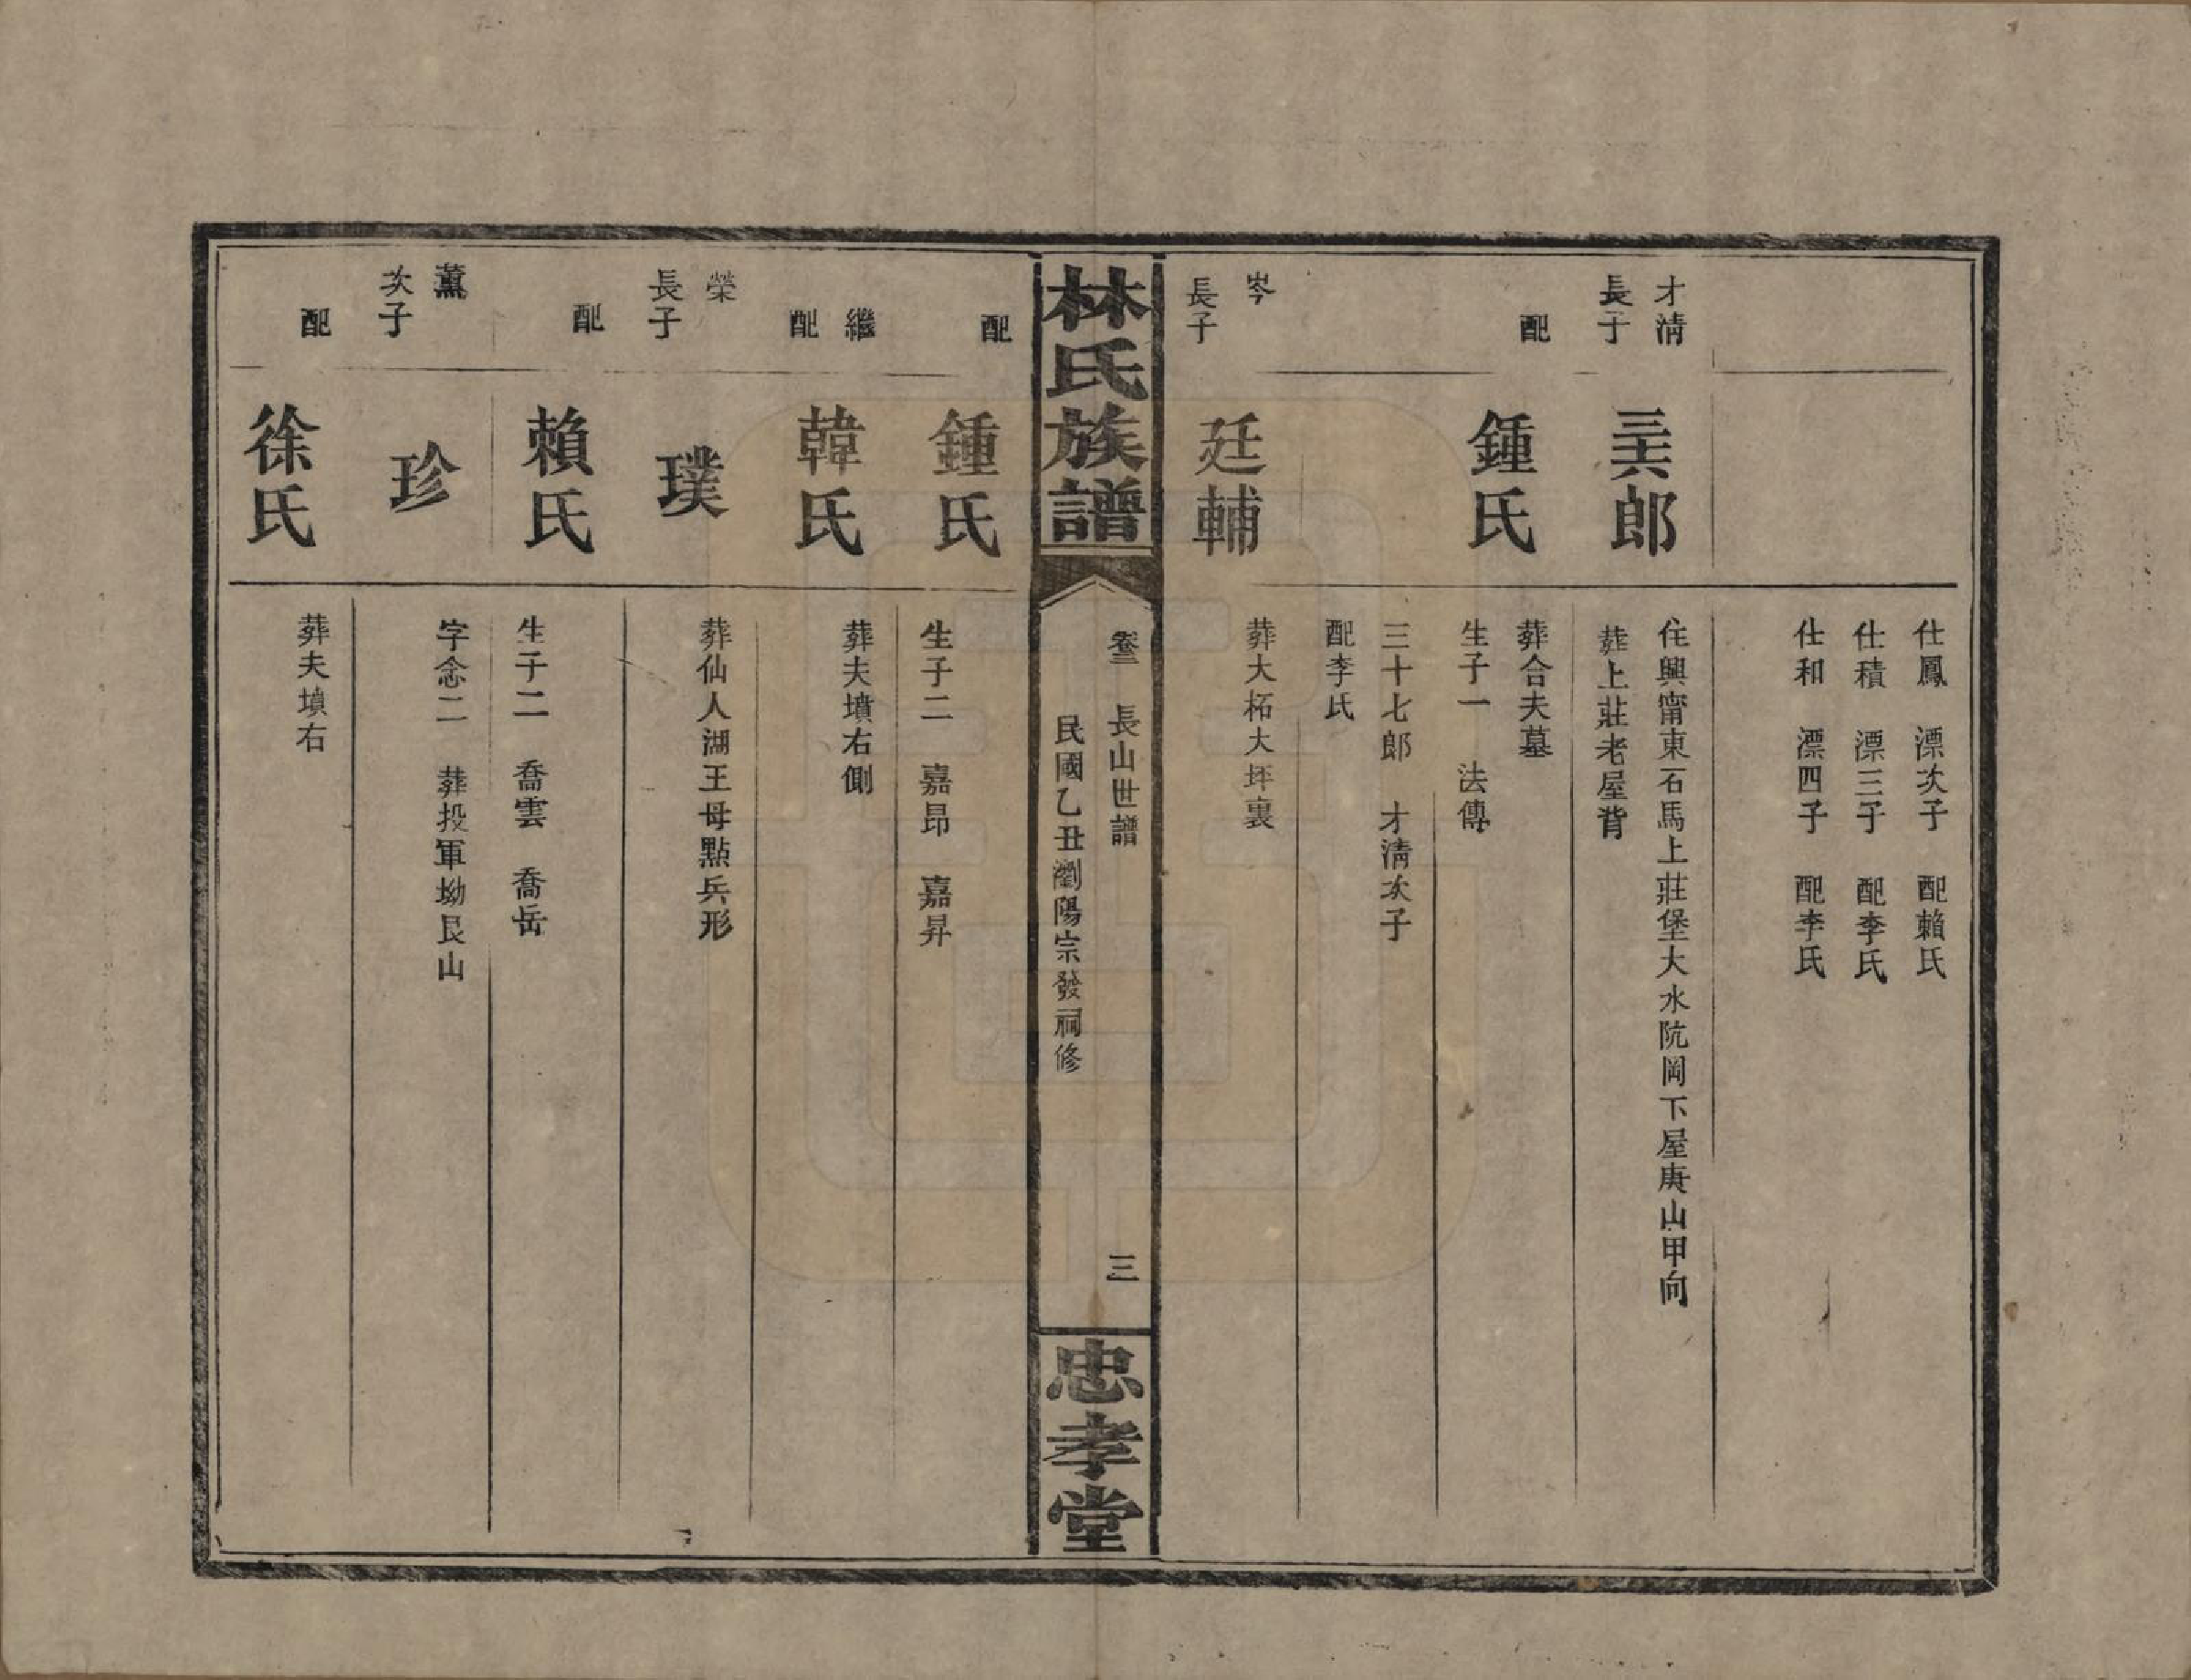 仕鳳　漂次子　配賴氏
仕積　漂三子　配李氏
仕和　漂四子　配李氏
才淸
長子
三六郎
住興甯東石馬上莊堡大水阬岡下屋庚山甲向
葬上莊老屋背
配
鍾氏
葬合夫墓
生子一　法傳
三十七郎　才淸次子
配李氏
岑
長子
廷輔
葬大柘大坪裏
林氏族譜
卷三　長山世譜
三
民國乙丑瀏陽宗發祠修
忠孝堂
配
鍾氏
生子二　嘉昂　嘉昇
繼
配
韓氏
葬夫墳右側
榮
長子
璞
葬仙人湖王母點兵形
配
賴氏
生子二　喬雲　喬岳
薰
次子
珍
字念二　葬投軍坳艮山
配
徐氏
葬夫墳右